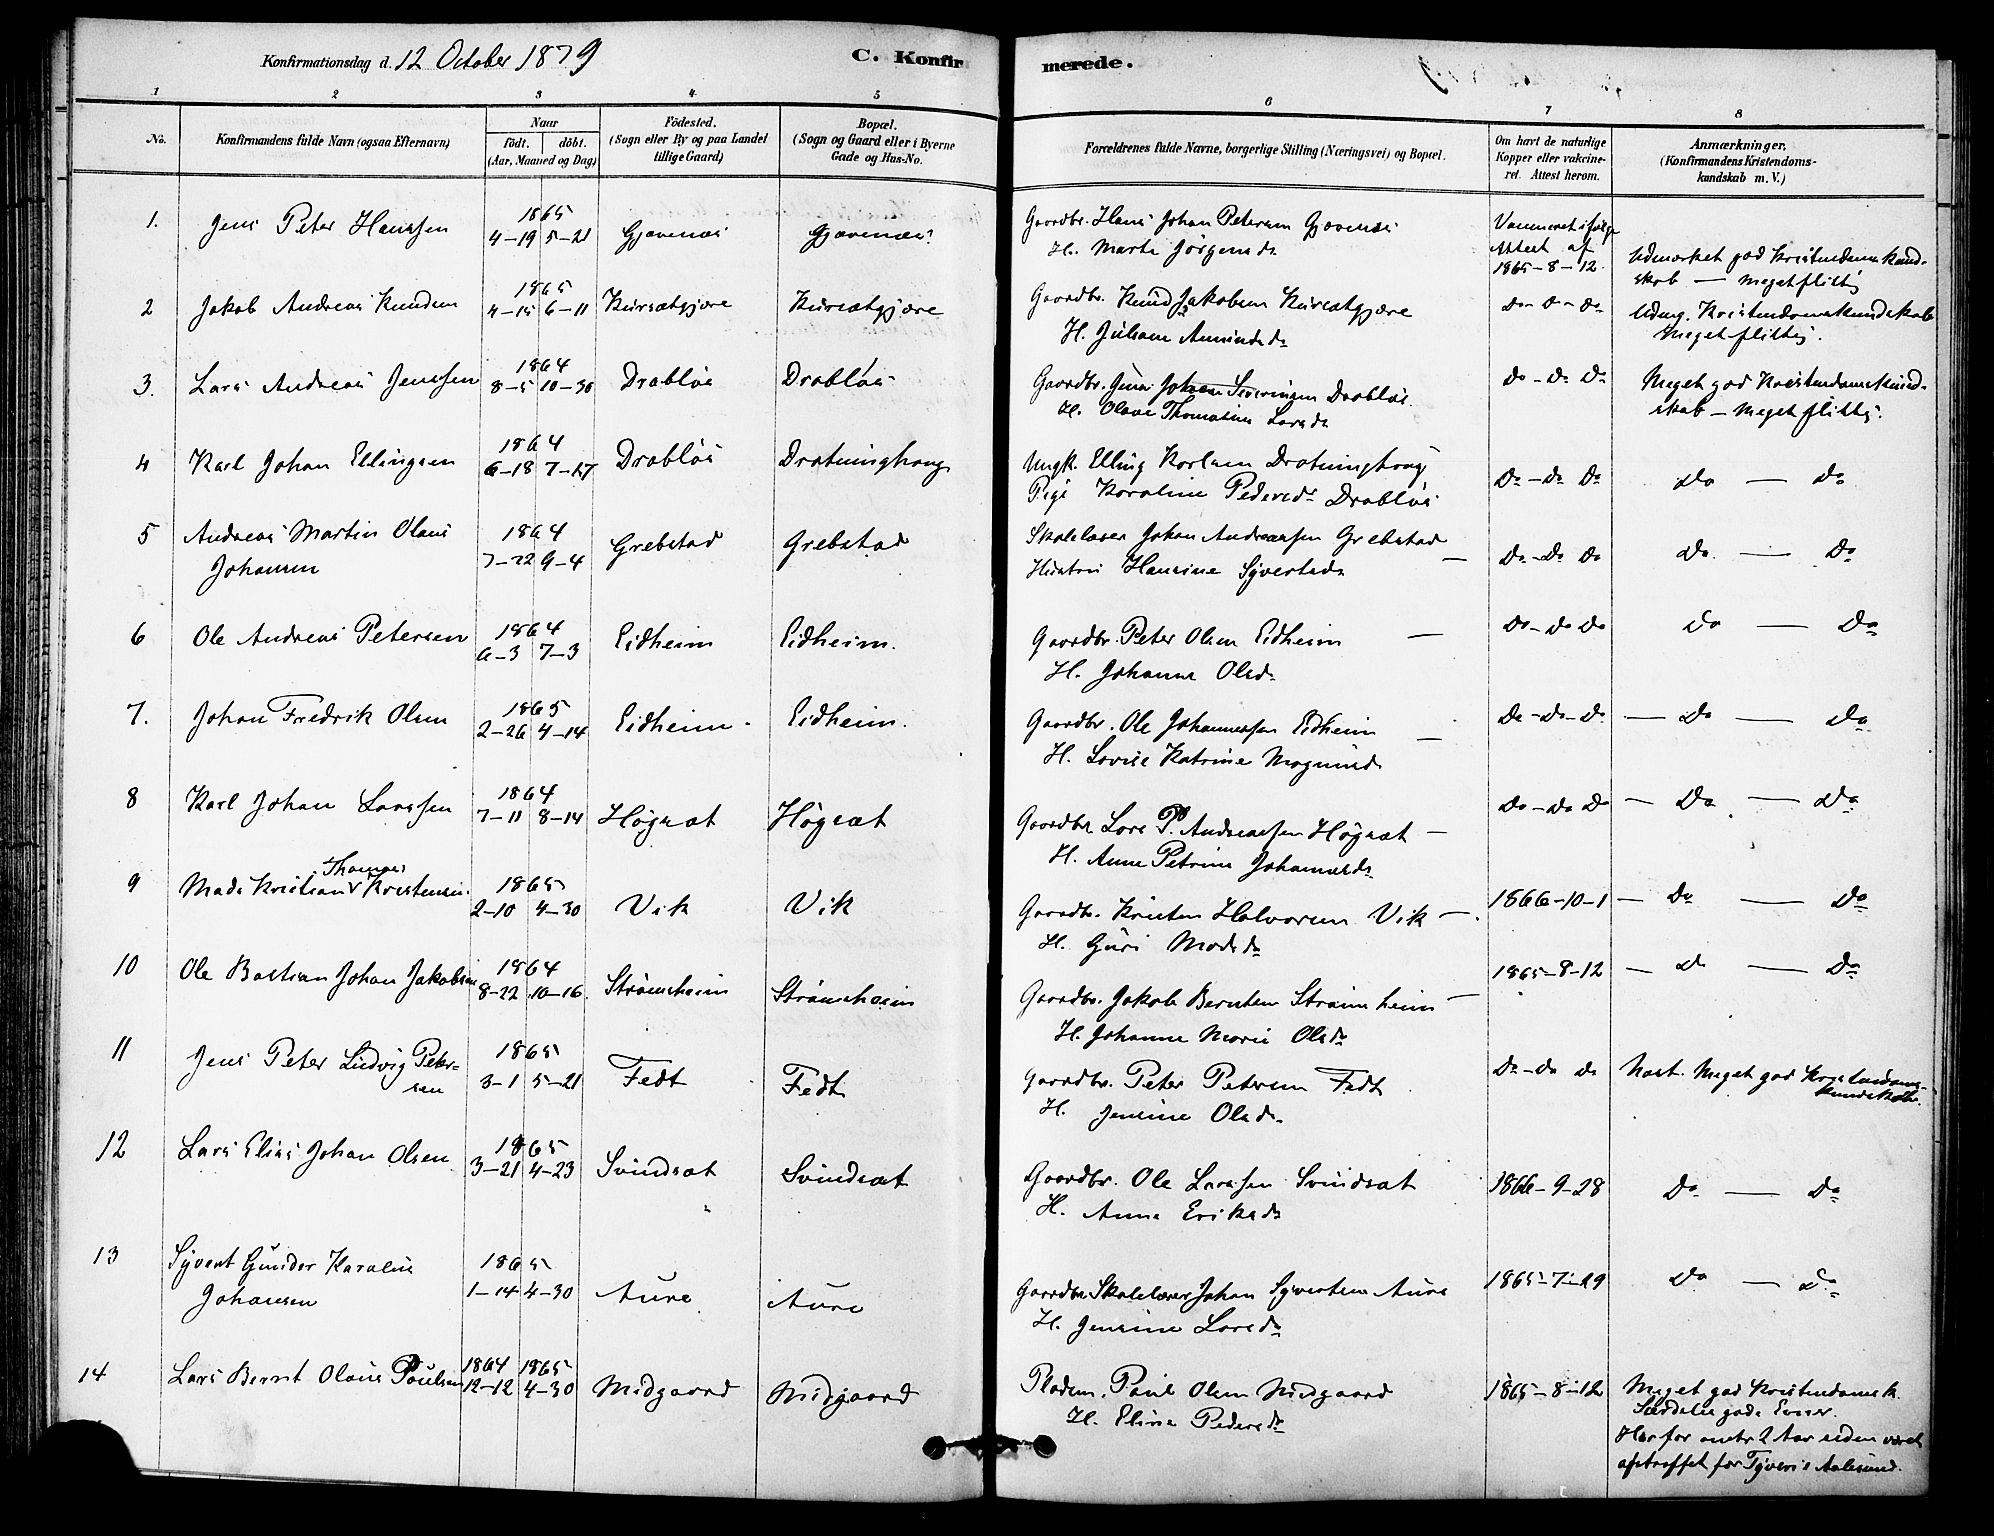 Konfirmationsdag d. 12 October 1879
C. Konfirmerede.
1 2 3 4 5 6 7 8
No.
Konfirmandens fulde Navn (ogsaa Efternavn)
Naar
födt. döbt.
(Aar, Maaned og Dag)
Födested.
(Sogn eller By og paa Landet
tillige Gaard)
Bopæl.
(Sogn og Gaard eller i Byerne
Gade og Hus-No.
Forældrenes fulde Navne, borgerlige Stilling (Næringsvei) og Bopæl.
Om havt de naturlige
Kopper eller vakcine-
ret. Attest herom.
Anmærkninger.
(Konfirmandens Kristendoms-
kundskab m. V.)
1. Jens Peter Hanssen 1865 4-19 5-21 Gjævenes Gjævenes
Gaardbr. Hans Johan Petersen Gjævenes
H. Marte Jørgensd.
Vaccineret ifølge
Attest af
1865-8-12.
Udmærket god Kristendomskund-
skab — Meget flittig
2 Jakob Andreas Knudsen 1865 4-15 6-11 Kursætgjære Kursætgjære
Gaardbr. Knud Jakobsen Kursætgjære
H. Juliane Amundsd.
Do - Do - Do
Udm. Kristendomskundskab
Meget flittig.
3. Lars Andreas Jenssen 1864 8-5 10-30 Drabløs Drabløs
Gaardbr. Jens Johan Severinsen Drabløs
H. Olave Thomasine Larsd.
Do - Do Do
Meget god Kristendomskund-
skab — Meget flittig.
4 Karl Johan Ellingsen 1864 6-18 7-17 Drabløs Dratninghaug
Ungk. Elling Karlsen Dratninghaug
Pige Karoline Pedersd. Drabløs
Do - Do Do
Do — Do
5 Andreas Martin Olaus
Johansen
1864 7-22 9-4 Grebstad Grebstad
Skolelærer Johan Andreassen Grebstad
Hustru Hansine Syvertsd. —
Do - Do Do
Do — Do
6 Ole Andreas Petersen 1864 6-3 7-3 Eidheim Eidheim.
Gaardbr. Peter Olsen Eidheim —
H. Johanne Olsd.
Do - Do Do
Do — Do
7. Johan Fredrik Olsen 1865 2-26 4-14 Eidheim Eidheim.
Gaardbr. Ole Johannessen Eidheim —
H. Lovise Katrine Mogensd.
Do - Do - Do
— Do — Do
8 Karl Johan Larssen 1864 7-11 8-14 Høgsæt Høgsæt
Gaardbr. Lars P. Andreassen Høgsæt —
H. Anne Petrine Johannesd.
Do - Do Do
— Do — Do
Thomas
9 Mads Kristian V Kristensen 1865 2-10 4-30 Vik Vik
Gaardbr. Kristen Halvorsen Vik —
H. Guri Madsd.
1866-10-1
— Do — Do
10 Ole Bastian Johan Jakobsen 1864 8-22 10-16 Strømsheim Strømsheim
Gaardbr. Jakob Berntsen Strømsheim —
H. Johanne Marie Olsd.
1865-8-12
— Do — Do
11 Jens Peter Ludvig Peter-
sen
1865 3-1 5-21 Fedt Fedt
Gaardbr. Peter Petersen Fedt
H. Jensine Olsd.
Do - Do Do
Næst. Meget god Kristendoms-
kundskab.
12 Lars Elias Johan Olsen 1865 3-21 4-23 Svindsæt Svindsæt
Gaardbr. Ole Larssen Svindsæt
H. Anna Eriksd.
1866-9-28
Do — Do
13 Syvert Gunder Karolius
Johansen
1865 1-14 4-30 Aure Aure
Gaardbr. Skolelærer Johan Syvertsen Aure
H. Jensine Larsd.
1865-7-29
Do — Do
14 Lars Bernt Olaus Paulsen 1864 12-12 1865 4-30 Midgaard Midgaard
Pladsm. Paul Olsen Midgaard
H. Eline Pedersd.
1865-8-12
Meget god Kristendomsk.
Særdeles gode Evner.
Har for omtr 2 Aar siden været
afstraffet for Tyveri i Aalesund.